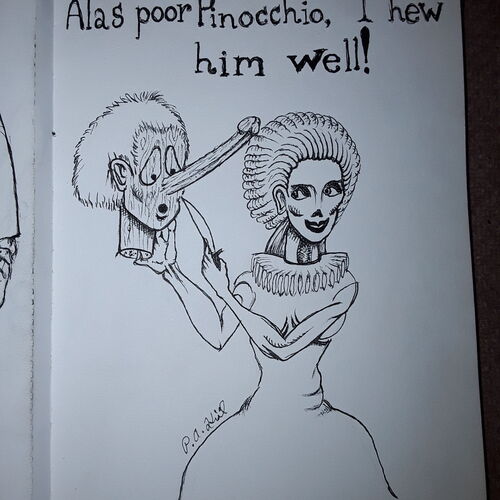 Alas poor Pinocchio, I hew
him well!